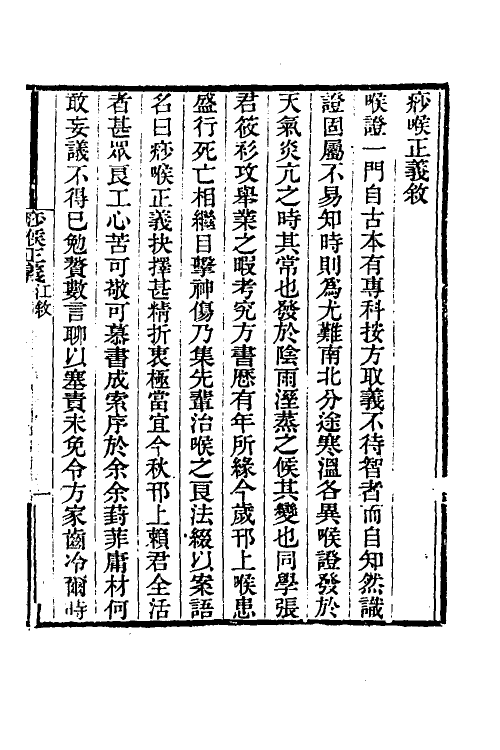 痧喉正義敘
喉證一門自古本有專科按方取義不待智者而自知然識
證固屬不易知時則爲尤難南北分途寒溫各異喉證發於
天氣炎亢之時其常也發於陰雨溼蒸之候其變也同學張
君筱衫攻舉業之暇考究方書歷有年所緣今歲邗上喉患
盛行死亡相繼目擊神傷乃集先輩治喉之良法綴以案語
名曰痧喉正義抉擇甚精折衷極當宜今秋邗上賴君全活
者甚眾良工心苦可敬可慕書成索序於余余葑菲庸材何
敢妄議不得已勉贅數言聊以塞責未免令方家齒冷爾時
痧喉正義 江敘 一